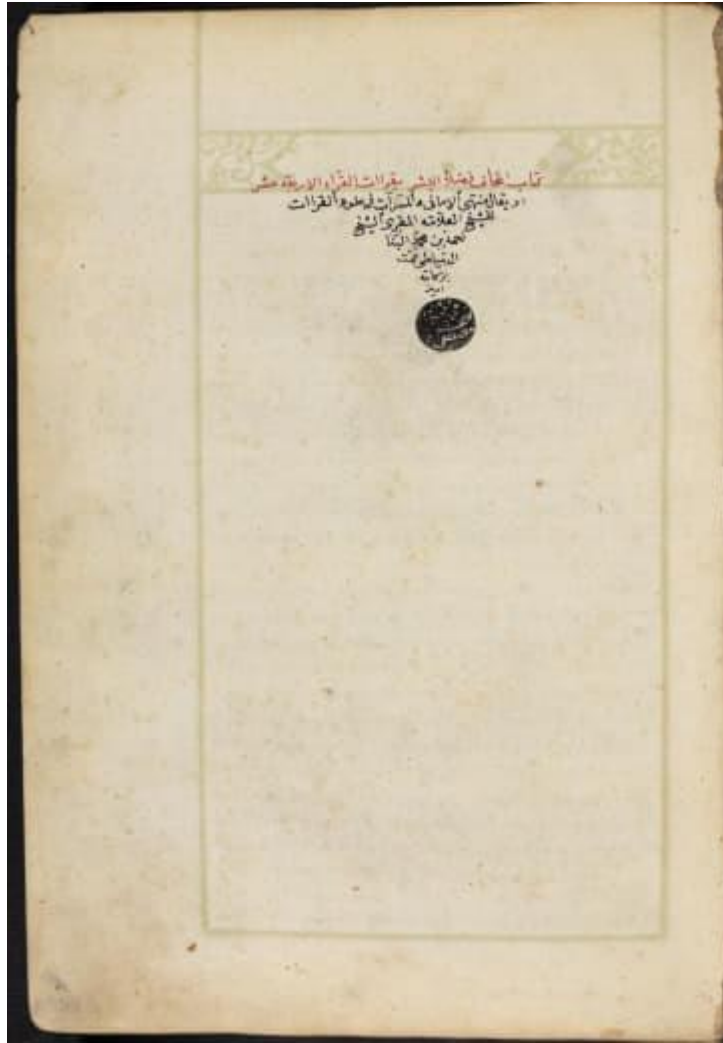 كتاب اتحاف فضلاء البشر بقراات القراء الاربعة عشر
او يقال منتهى الامانى والمسرات فى علوم القراات
للشيخ العلامه المقرى الشيخ
احمد بن محمد البنا
الدمياطى نفعنا
ببركاته
امين